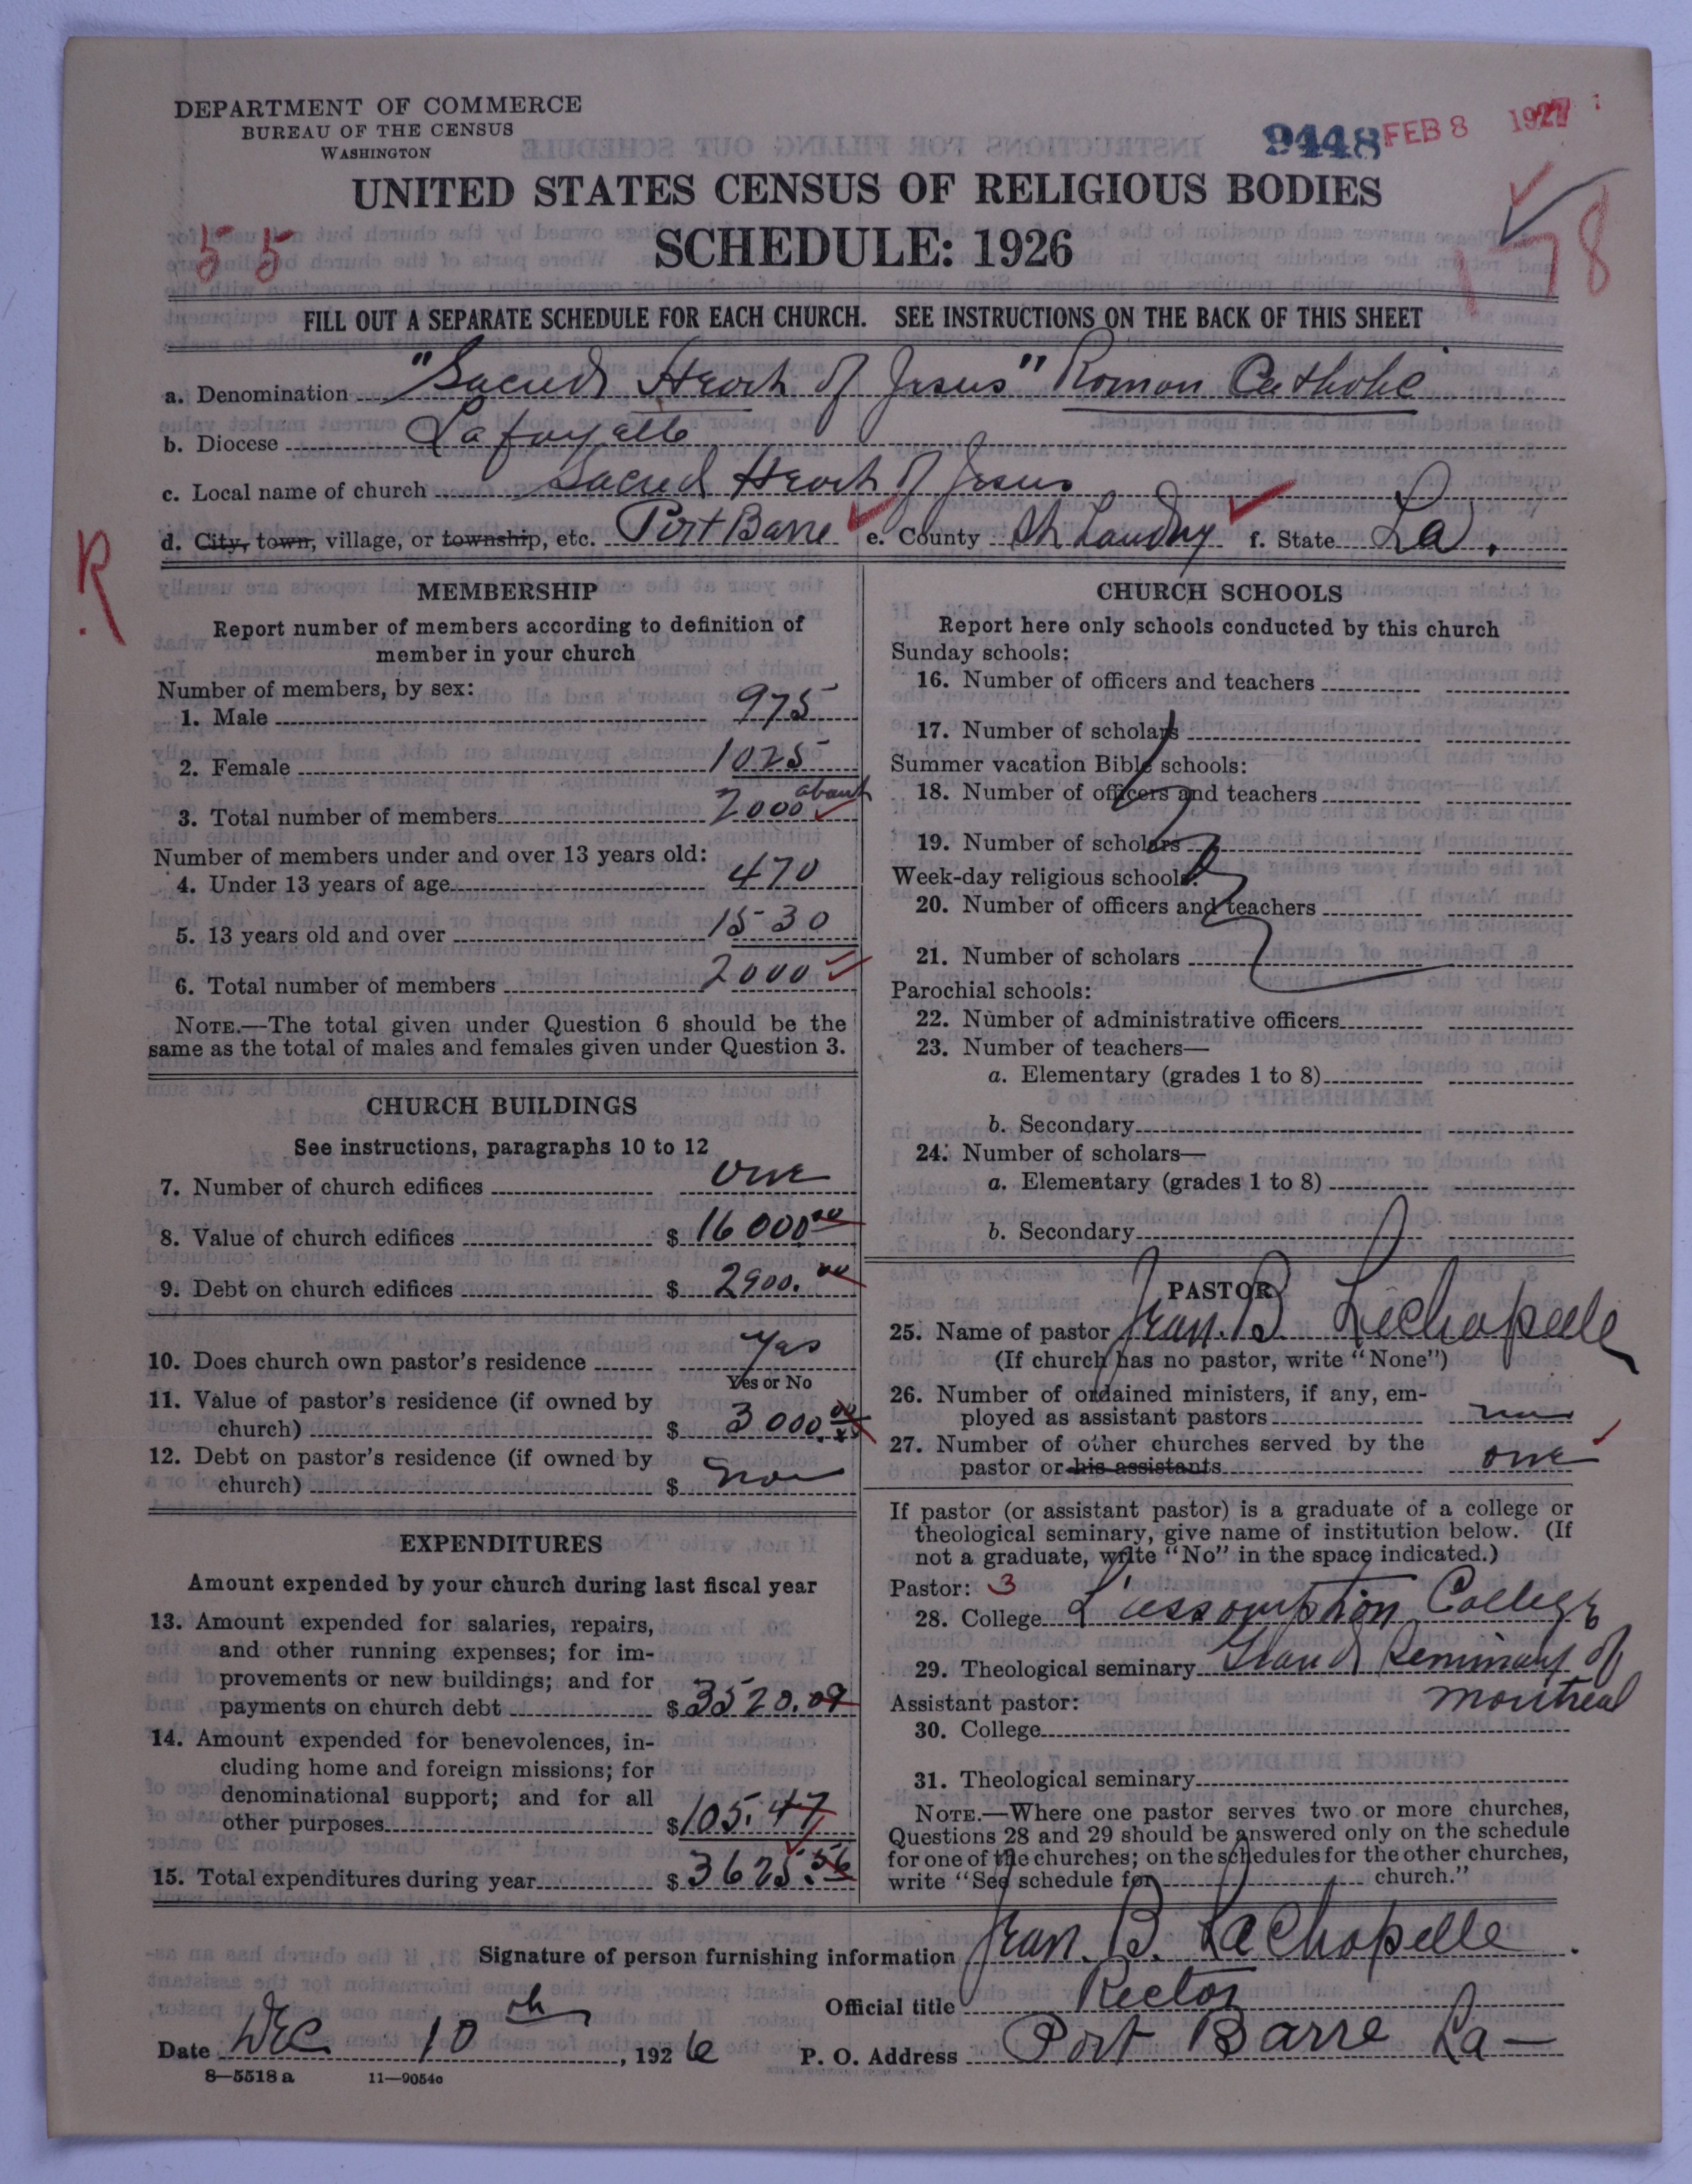 DEPARTMENT OF COMMERCE
BUREAU OF THE CENSUS
WASHINGTON
9448 FEB 8 1927
UNITED STATES CENSUS OF RELIGIOUS BODIES
SCHEDULE: 1926
55
178
FILL OUT A SEPARATE SCHEDULE FOR EACH CHURCH. SEE INSTRUCTIONS ON THE BACK OF THIS SHEET
a. Denomination "Sacred Heart of Jesus" Roman Catholic
b. Diocese Lafayette
c. Local name of church Sacred Heart of Jesus
d. City, town, village, or township, etc. Port Barre e. County St Landry f. State La.
R
MEMBERSHIP
Report number of members according to definition of
member in your church
Number of members, by sex:
1. Male 975
2. Female 1025
about
3. Total number of members 2000
Number of members under and over 13 years old:
4. Under 13 years of age 470
5. 13 years old and over 1530
6. Total number of members 2000
NOTE.—The total given under Question 6 should be the
same as the total of males and females given under Question 3.
CHURCH BUILDINGS
See instructions, paragraphs 10 to 12
7. Number of church edifices one
8. Value of church edifices $ 16000.00
9. Debt on church edifices $ 2900.00
10. Does church own pastor's residence Yes
Yes or No
11. Value of pastor's residence (if owned by
church) $ 3000.00
12. Debt on pastor's residence (if owned by
church) $ non
EXPENDITURES
Amount expended by your church during last fiscal year
13. Amount expended for salaries, repairs,
and other running expenses; for im-
provements or new buildings; and for
payments on church debt $ 3520.09
14. Amount expended for benevolences, in-
cluding home and foreign missions; for
denominational support; and for all
other purposes $ 105.47
15. Total expenditures during year $ 3625.56
CHURCH SCHOOLS
Report here only schools conducted by this church
Sunday schools:
16. Number of officers and teachers
17. Number of scholars
Summer vacation Bible schools:
18. Number of officers and teachers
19. Number of scholars
Week-day religious schools:
20. Number of officers and teachers
21. Number of scholars
Parochial schools:
22. Number of administrative officers
23. Number of teachers—
a. Elementary (grades 1 to 8)
b. Secondary
24. Number of scholars—
a. Elementary (grades 1 to 8)
b. Secondary
PASTOR
25. Name of pastor Jean. B. LaChapelle
(If church has no pastor, write "None")
26. Number of ordained ministers, if any, em-
ployed as assistant pastors
27. Number of other churches served by the
pastor or his assistants one
If pastor (or assistant pastor) is a graduate of a college or
theological seminary, give name of institution below. (If
not a graduate, write "No" in the space indicated.)
Pastor: 3
28. College L'assomption College
29. Theological seminary Grand Seminary of
Montreal
Assistant pastor:
30. College
31. Theological seminary
NOTE.—Where one pastor serves two or more churches,
Questions 28 and 29 should be answered only on the schedule
for one of the churches; on the schedules for the other churches,
write "See schedule for church."
Signature of person furnishing information Jean. B. LaChapelle
Official title Rector
Date Dec 10 th, 1926 P. O. Address Port Barre La—
8—5518a 11—9054c